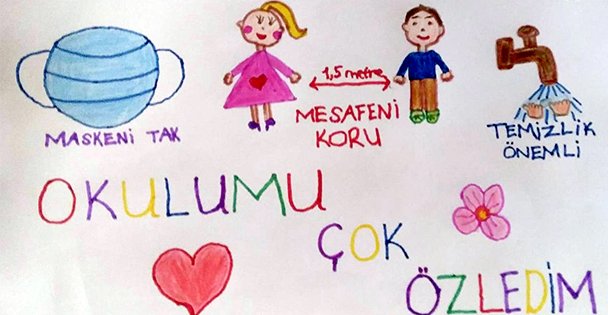 MASKENİ TAK
1,5 metre
MESAFENİ
KORU
TEMİZLİK
ÖNEMLİ
OKULUMU
ÇOK
ÖZLEDİM